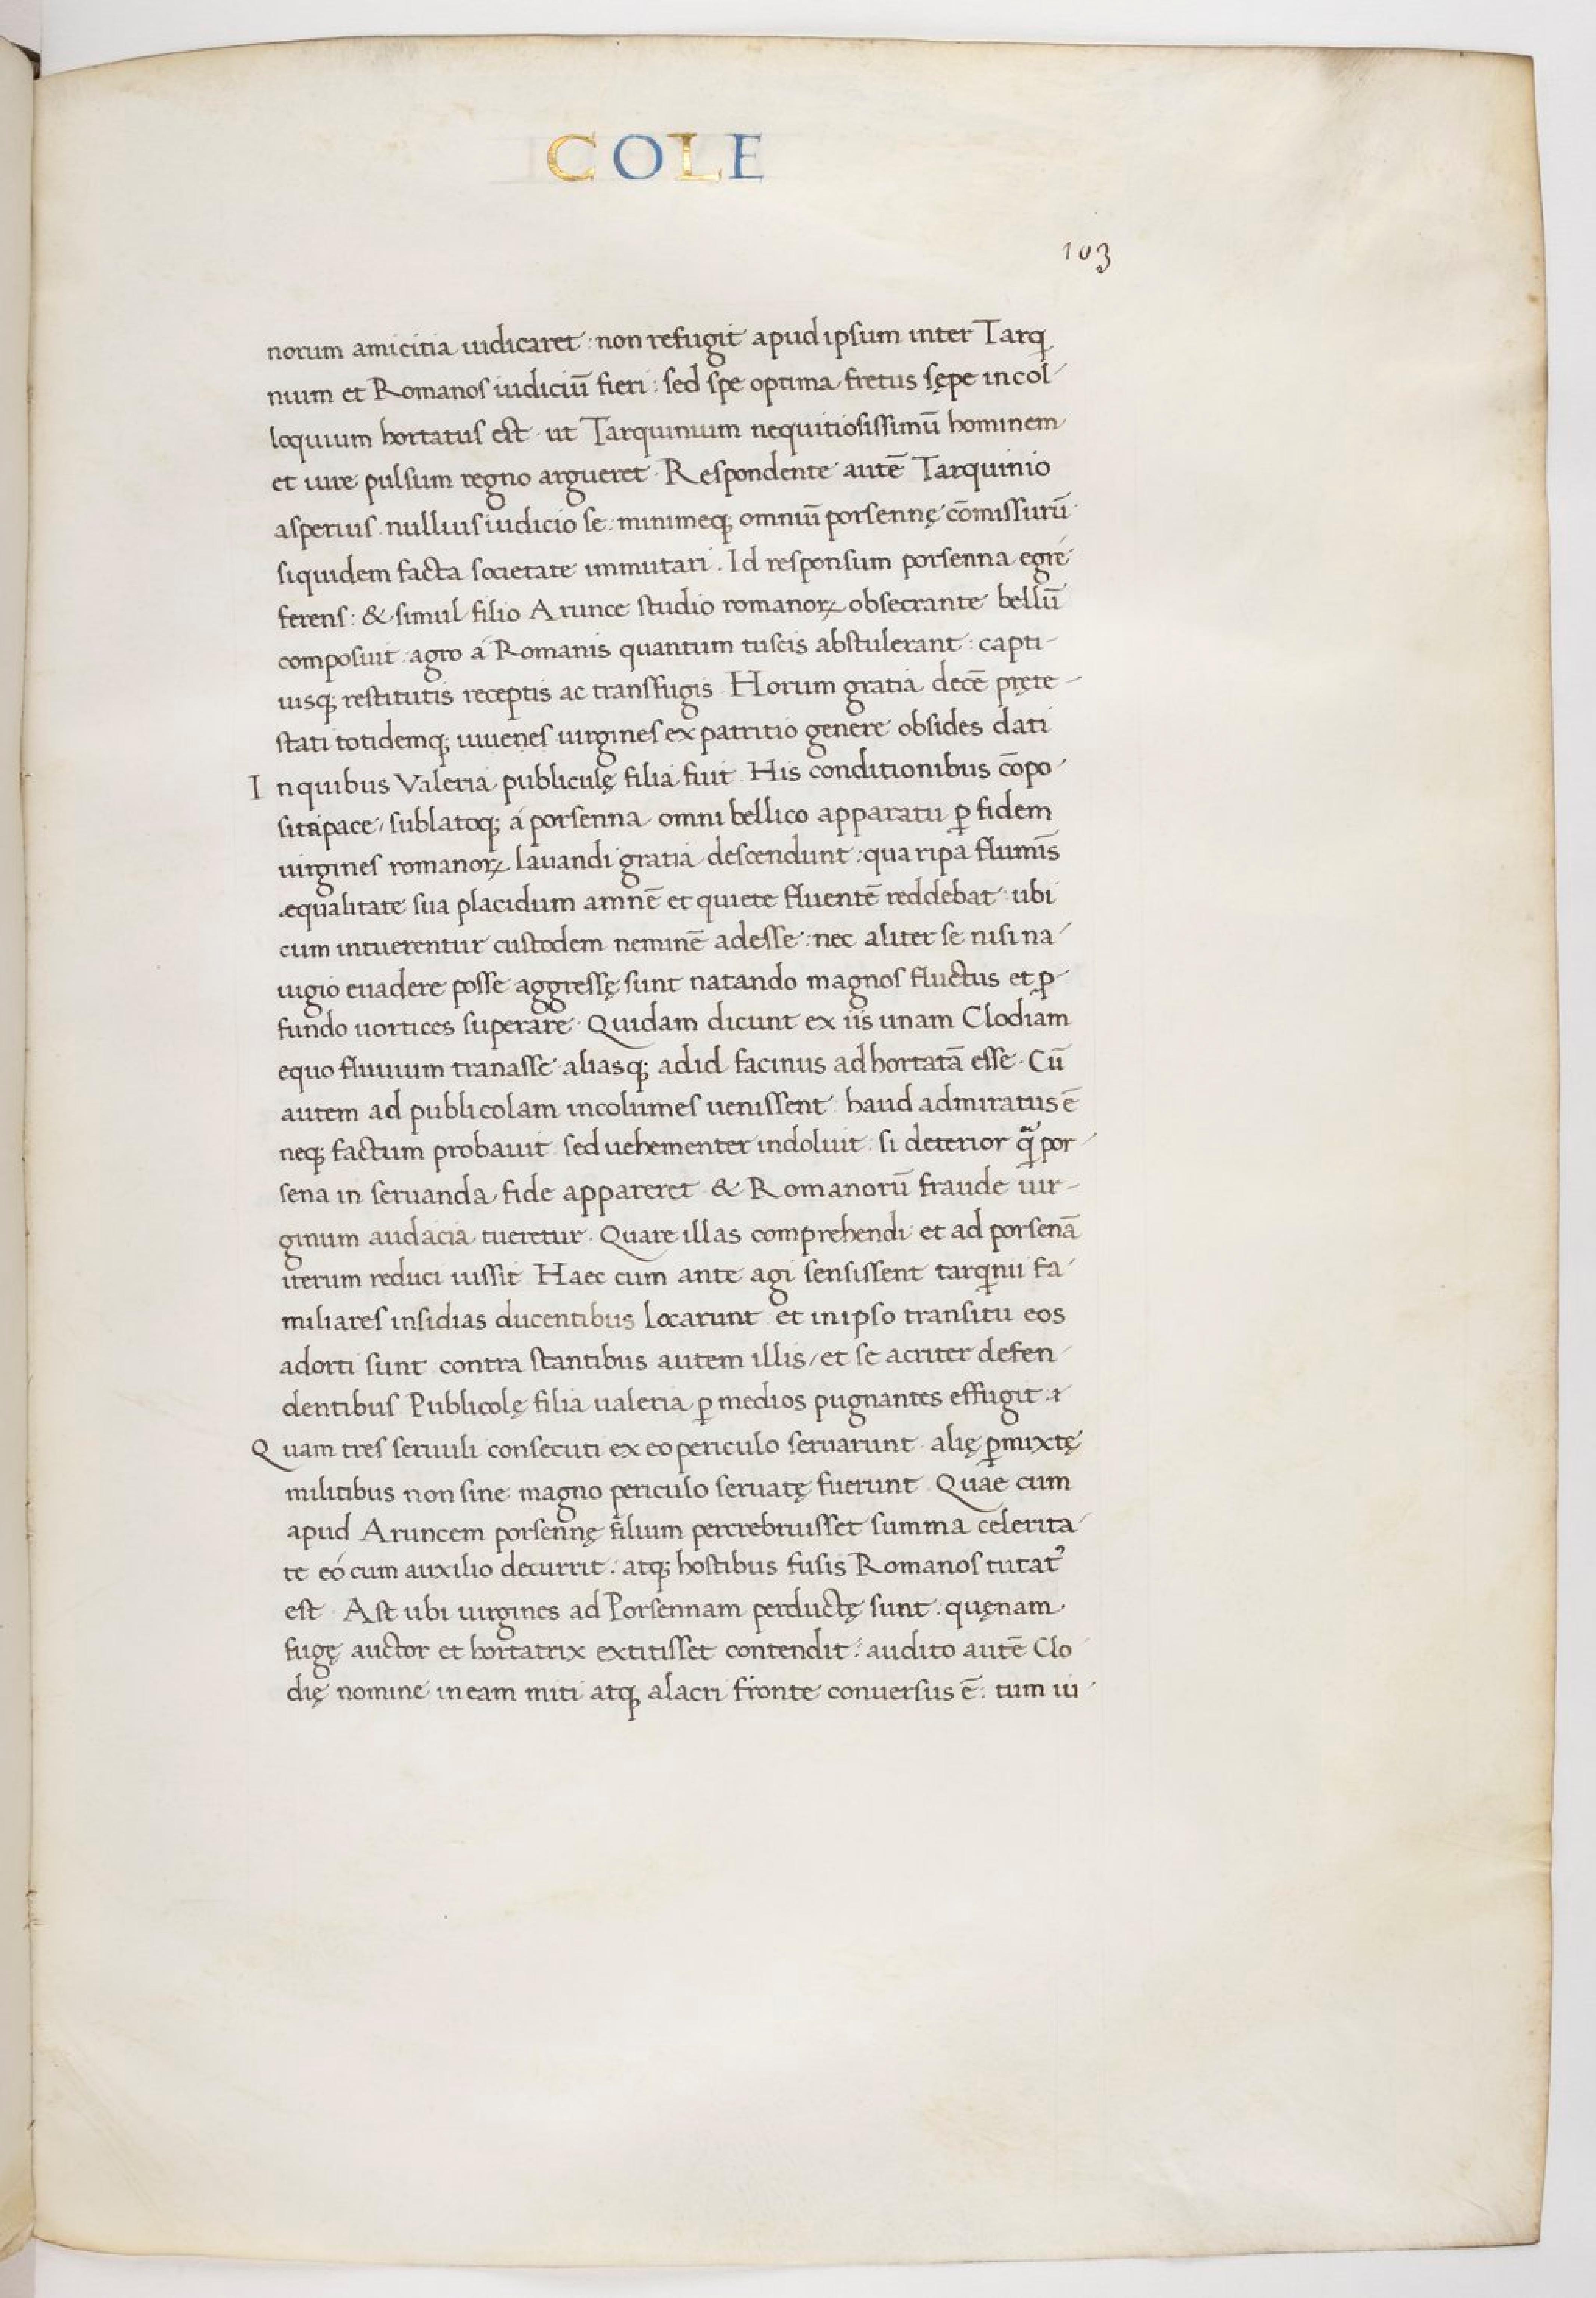 COLE
103
norum amicitia iudicaret : non refugit apud ipsum inter Tarq
nium et Romanos iudiciū fieri : sed spe optima fretus sępe in col
loquium hortatus est · ut Tarquinium nequitiosissimū hominem
et iure pulsum regno argueret · Respondente autē Tarquinio
asperius nullius iudicio se : minimeq; omniū porsennę cōmissurū
siquidem facta societate immutari . Id responsum porsenna egre
ferens : & simul filio Arunce studio romanoꝝ obsecrante bellū
composuit : agro á Romanis quantum tuscis abstulerant : capti-
uisq; restitutis receptis ac transfugis Horum gratia decē pręte-
stati totidemq; iuuenes uirgines ex patritio genere obsides dati
In quibus Valeria publiculę filia fuit · His conditionibus cōpo
sita pace / sublatoq; á porsenna omni bellico apparatu ꝑ fidem
uirgines romanoꝝ lauandi gratia descendunt : qua ripa flumīs
equalitate sua placidum amnē et quiete fluentē reddebat · ubi
cum intuerentur custodem neminē adesse : nec aliter se nisi na
uigio euadere posse aggressę sunt natando magnos fluctus et ꝓ-
fundo uortices superare · Quidam dicunt ex iis unam Clodiam
equo fluuium tranasse aliasq; ad id facinus adhortatā esse · Cū
autem ad publicolam incolumes uenissent haud admiratus ē
neq; factum probauit sed uehementer indoluit si deterior qͣ por
sena in seruanda fide appareret & Romanorū fraude uir-
ginum audacia tueretur · Quare illas comprehendi et ad porsenā
iterum reduci iussit Haec cum ante agi sensissent tarqinii fa
miliares insidias ducentibus locarunt et in ipso transitu eos
adorti sunt contra stantibus autem illis / et se acriter defen
dentibus Publicolę filia ualeria ꝑ medios pugnantes effugit .
Quam tres seruuli consecuti ex eo periculo seruarunt alię ꝑmixtę
militibus non sine magno periculo seruatę fuerunt Quae cum
apud Aruncem porsennę filium percrebruisset summa celerita
te eó cum auxilio decurrit : atq; hostibus fusis Romanos tutatꝰ
est Ast ubi uirgines ad Porsennam perductę sunt : quęnam
fugę auctor et hortatrix extitisset contendit : audito autē Clo
dię nomine in eam miti atq; alacri fronte conuersus ē : tum iu